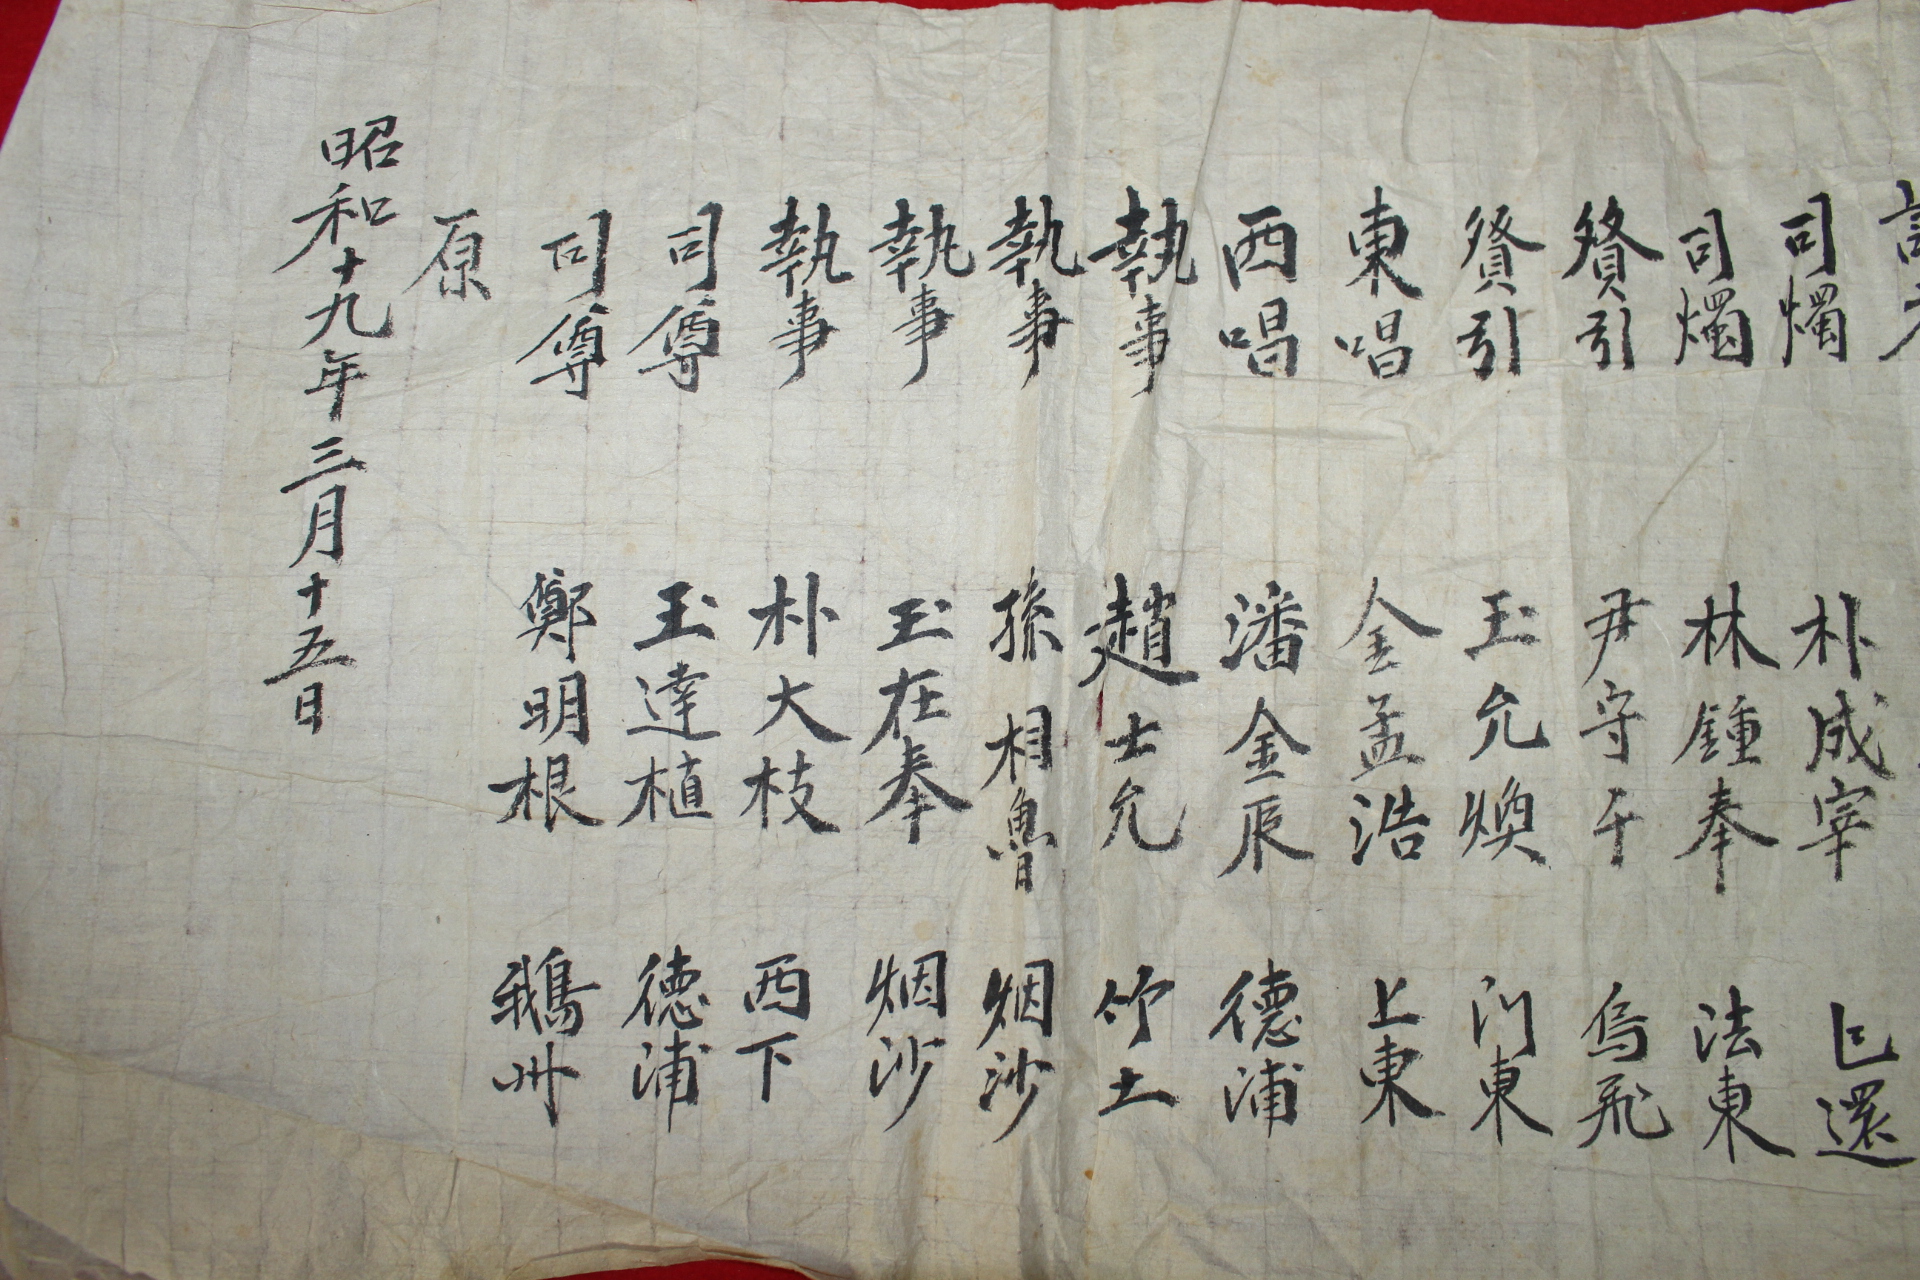 司燭 朴成宰 已還
司燭 林鍾奉 法東
贊引 尹守千 烏飛
贊引 玉允煥 門東
東唱 金孟浩 上東
西唱 潘金辰 德浦
執事 趙士允 竹土
執事 孫相魯 烟沙
執事 玉在奉 烟沙
執事 朴大枝 西下
司尊 玉達植 德浦
司尊 鄭明根 鵝州
原
昭和十九年三月十五日